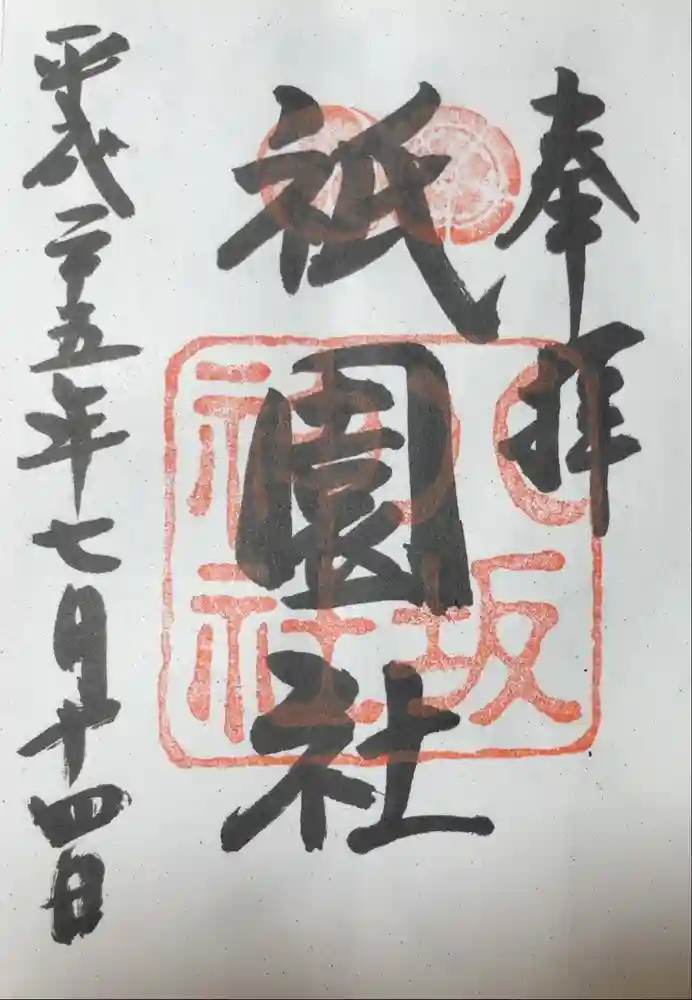 奉拝
祇園社
八坂
神社
平成二十五年七月十四日